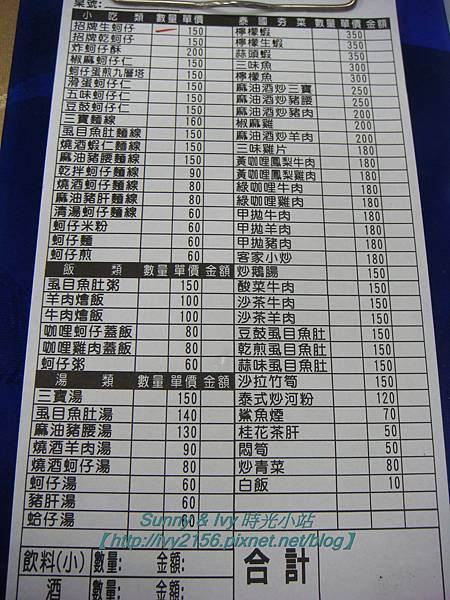 桌號:
小 吃 類 數量 單價
招牌生蚵仔 150
招牌乾蚵仔 150
炸蚵仔酥 200
椒麻蚵仔仁 150
蚵仔蛋煎九層塔 150
滑蛋蚵仔仁 150
五味蚵仔仁 150
豆鼓蚵仔仁 150
三寶麵線 160
虱目魚肚麵線 150
燒酒蝦仁麵線 150
麻油豬腰麵線 150
乾拌蚵仔麵線 90
燒酒蚵仔麵線 80
麻油豬肝麵線 80
清湯蚵仔麵線 60
蚵仔米粉 60
蚵仔麵 60
蚵仔煎 60
飯 類 數量 單價 金額
虱目魚肚粥 150
羊肉燴飯 100
牛肉燴飯 100
咖哩蚵仔蓋飯 80
咖哩雞肉蓋飯 80
蚵仔粥 60
湯 類 數量 單價 金額
三寶湯 150
虱目魚肚湯 140
麻油豬腰湯 130
燒酒羊肉湯 90
燒酒蚵仔湯 80
蚵仔湯 60
豬肝湯 60
蛤仔湯 60
飲料(小) 數量: 金額:
酒 數量: 金額:
泰 國 夯 菜 數量 單價 金額
檸檬蝦 350
檸檬生蝦 350
蒜頭蝦 350
三味魚 300
檸檬魚 300
麻油酒炒三寶 250
麻油酒炒豬腰 250
麻油酒炒豬肉 200
椒麻雞 200
麻油酒炒羊肉 200
三味雞片 180
黃咖哩鳳梨牛肉 180
黃咖哩鳳梨雞肉 180
綠咖哩牛肉 180
綠咖哩雞肉 180
甲拋牛肉 180
甲拋羊肉 180
甲拋豬肉 180
客家小炒 180
炒鵝腸 150
酸菜牛肉 150
沙茶牛肉 150
沙茶羊肉 150
豆鼓虱目魚肚 150
乾煎虱目魚肚 150
蒜味虱目魚肚 150
沙拉竹筍 150
泰式炒河粉 120
鯊魚煙 70
桂花茶肝 50
悶筍 50
炒青菜 80
白飯 10
合計
Sunny & Ivy 時光小站
【http://ivy2156.pixnet.net/blog】